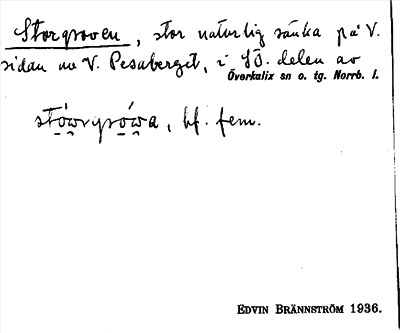 Storgroven, stor naturlig sänka på V.
sidan av V. Pesaberget, i SÖ. delen av
Överkalix sn o. tg. Norrb. l.
bf. fem.
EDVIN BRÄNNSTRÖM 1936.